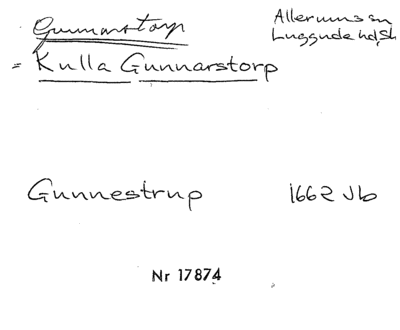 Gunnarstorp
Allerums sn
Luggude hd, Sk
= Kulla Gunnarstorp
Gunnestrup 1662 Jb
Nr 17874